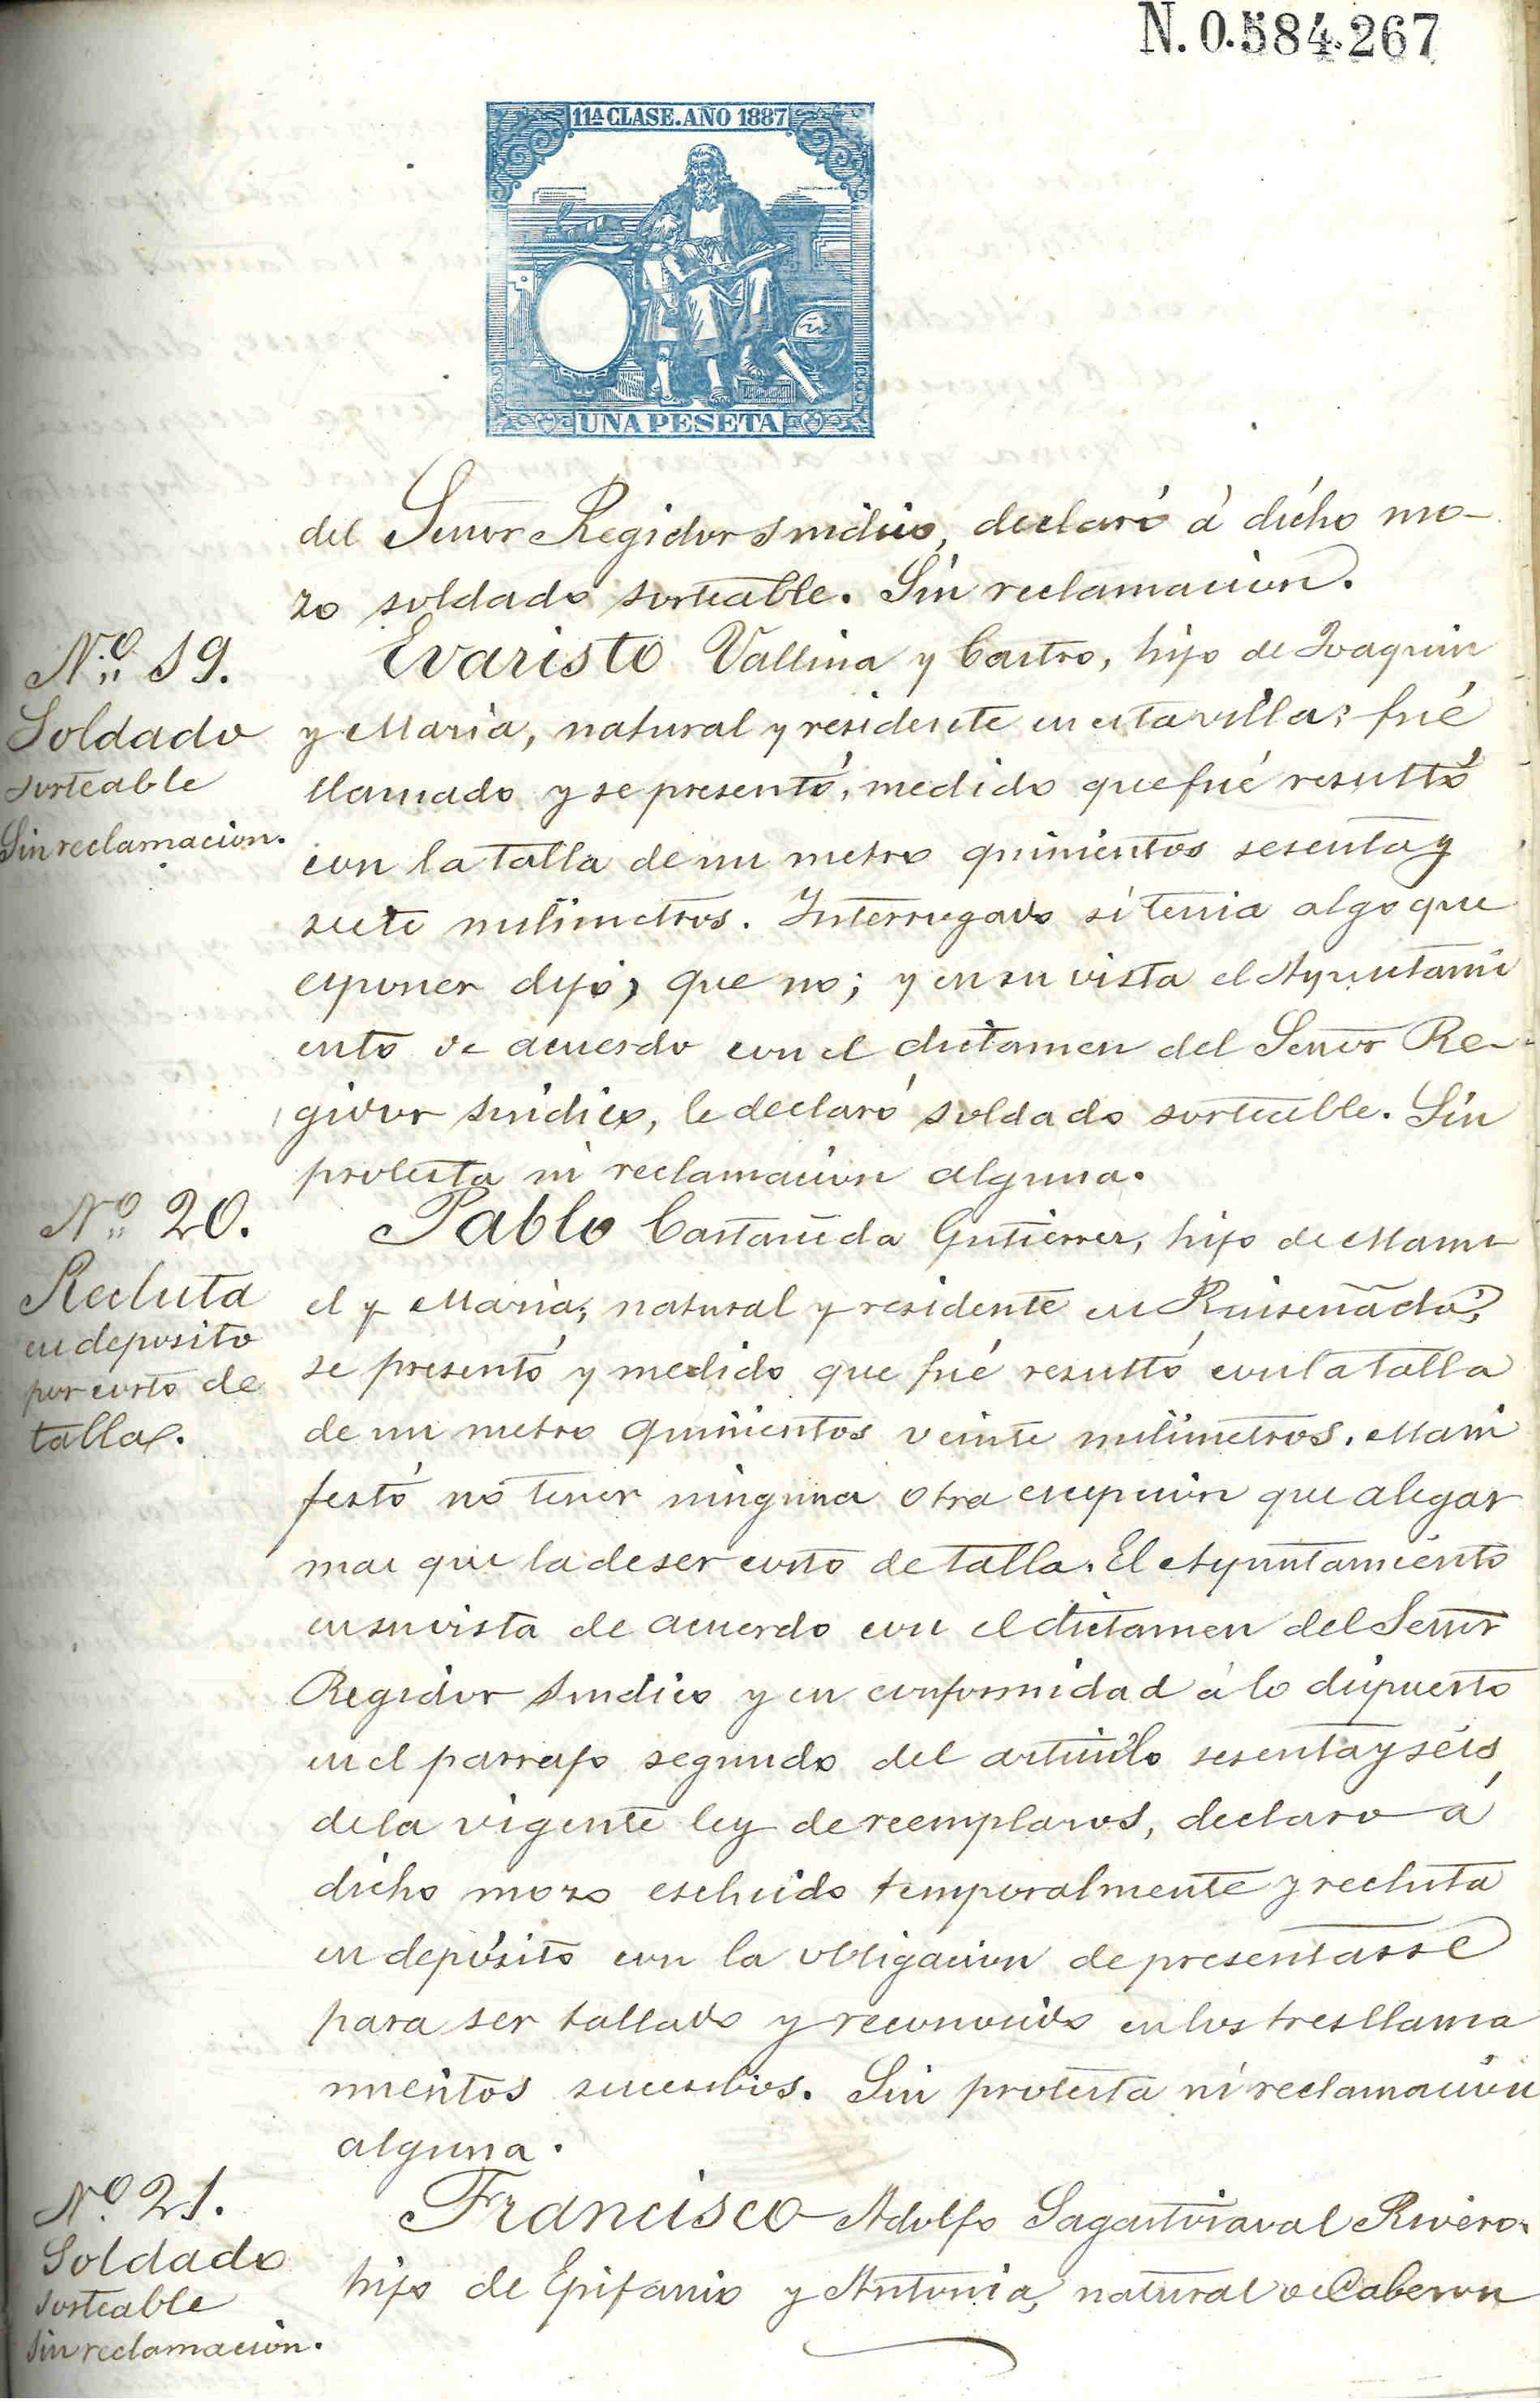 N. 0.584.267
11ª CLASE. AÑO 1887
UNA PESETA
del Señor Regidor Sindico, declaró á dicho mo-
zo soldado sorteable. Sin reclamacion.
Nº 19.
Soldado
sorteable
Sin reclamacion.
Evaristo Vallina y Castro, hijo de Joaquin
y Maria, natural y residente en esta villa; fué
llamado y se presentó, medido que fué resultó
con la talla de un metro quinientos sesenta y
siete milimetros. Interrogado si tenia algo que
esponer dijo, que no; y en su vista el Ayuntami
ento de acuerdo con el dictamen del Señor Re-
gidor Sindico, le declaró soldado sorteable. Sin
protesta ni reclamacion alguna.
Nº 20.
Recluta
en deposito
por corto de
talla.
Pablo Castañeda Gutierrez, hijo de Manu
el y Maria, natural y residente en Ruiseñada;
se presentó y medido que fué resultó con la talla
de un metro quinientos veinte milimetros. Mani
festó no tener ninguna otra escepcion que alegar
mas que la de ser corto de talla. El Ayuntamiento
en su vista de acuerdo con el dictamen del Señor
Regidor Sindico y en conformidad á lo dispuesto
en el parrafo segundo del articulo sesenta y seis
de la vigente ley de reemplazos, declaro á
dicho mozo escluido temporalmente y recluta
en depósito con la obligacion de presentarse
para ser tallado y reconocido en los tres llama
mientos sucesibos. Sin protesta ni reclamacion
alguna.
Nº 21.
Soldado
sorteable
Sin reclamacion.
Francisco Adolfo Sagastizaval Rivero.
hijo de Epifanio y Antonia, natural de Cabezon